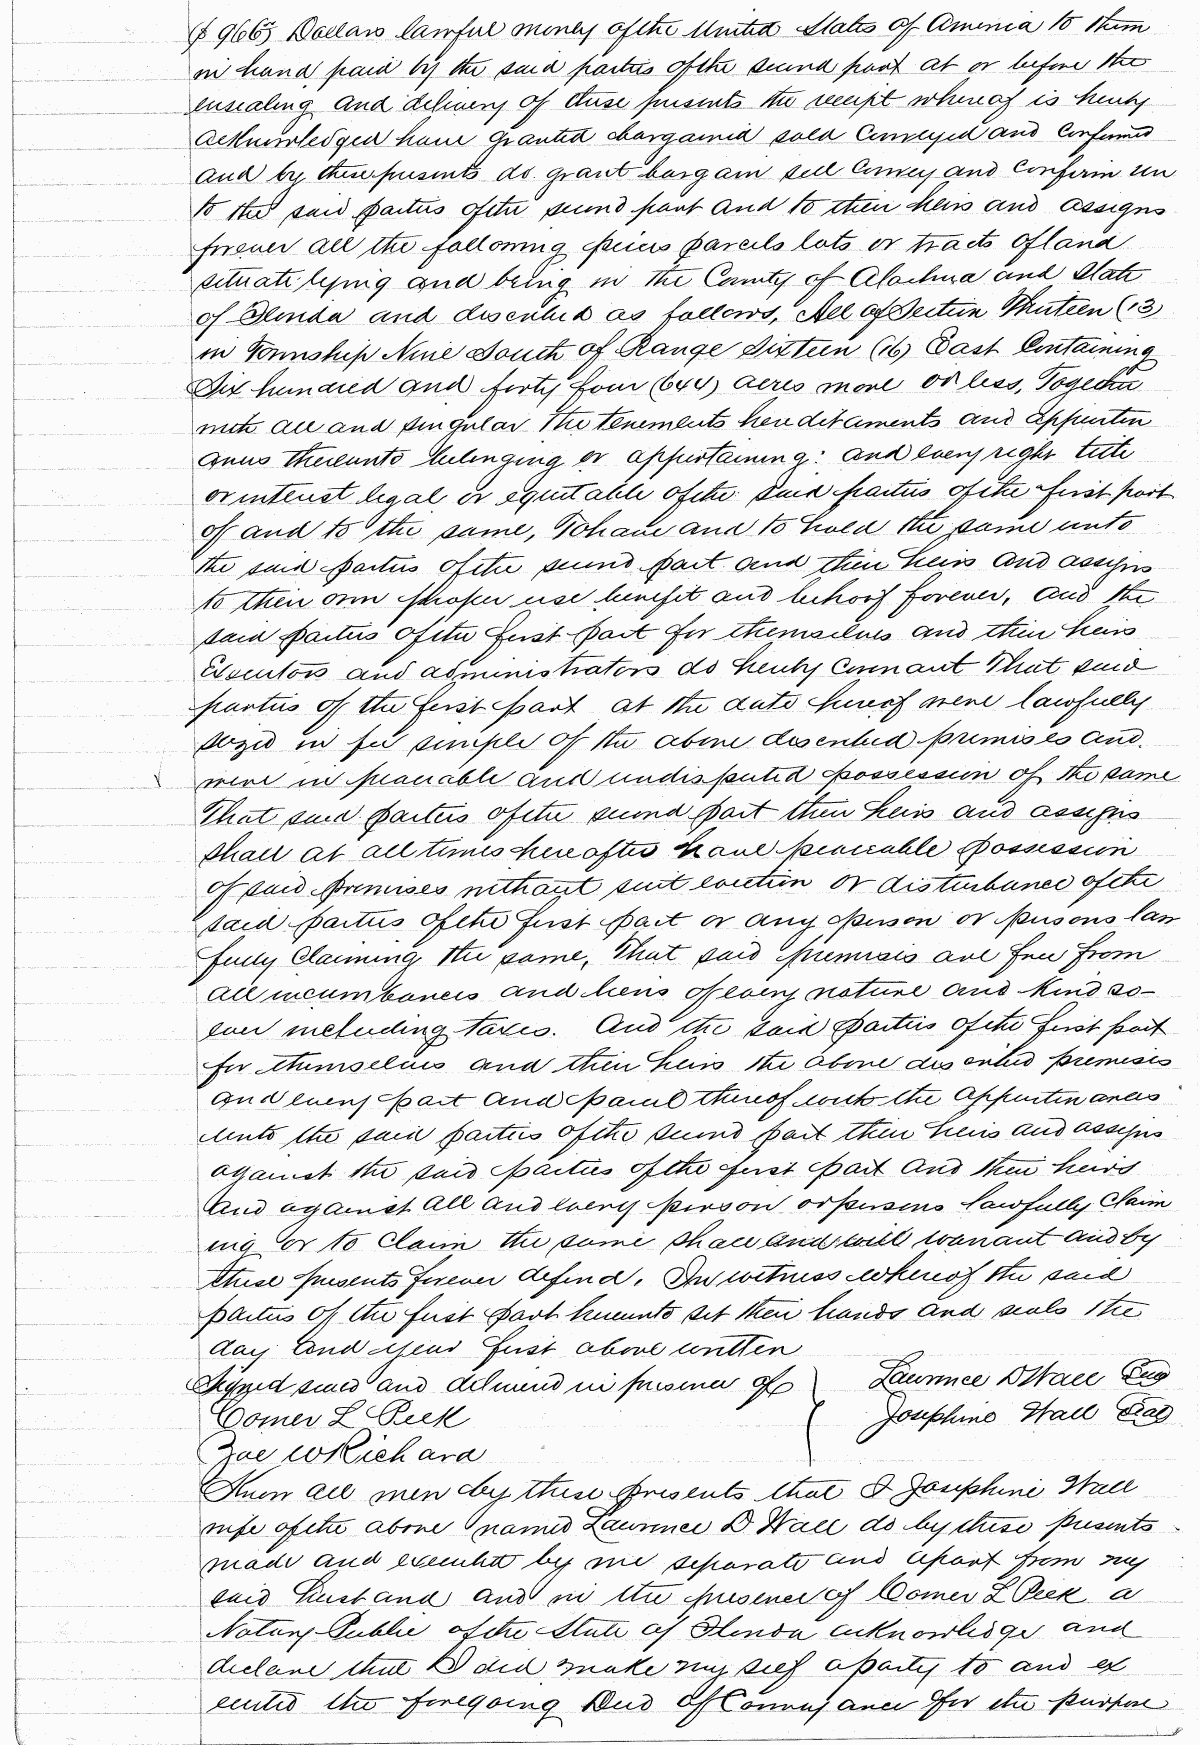 ($9665 Dollars lawful money of the United States of America to them
in hand paid by the said parties of the second part at or before the
ensealing and delivery of these presents the receipt whereof is hereby
acknowledged have granted bargained sold conveyed and confirmed
and by these presents do grant bargain sell convey and confirm un
to the said parties of the second part and to their heirs and assigns
forever all the following pieces parcels lots or tracts of land
situate lying and being in the County of Alachua and State
of Florida and described as follows, All of Section Thirteen (13)
in Township Nine South of Range Sixteen (16) East Containing
Six hundred and forty four (644) acres more or less, Together
with all and singular the tenements hereditaments and appurten
ances thereunto belonging or appertaining: and every right title
or interest legal or equitable of the said parties of the first part
of and to the same, To have and to hold the same unto
the said parties of the second part and their heirs and assigns
to their own proper use benefit and behoof forever, and the
said parties of the first part for themselves and their heirs
Executors and administrators do hereby covenant That said
parties of the first part at the date hereof were lawfully
seized in fee simple of the above described premises and
were in peaceable and undisputed possession of the same
That said parties of the second part their heirs and assigns
shall at all times hereafter have peaceable possession
of said premises without suit eviction or disturbance of the
said parties of the first part or any person or persons law
fully claiming the same, That said premises are free from
all incumbances and liens of every nature and kind so-
ever including taxes. And the said parties of the first part
for themselves and their heirs the above described premises
and every part and parcel thereof with the appurtenances
unto the said parties of the second part their heirs and assigns
against the said parties of the first part and their heirs
and against all and every person or persons lawfully claim
ing or to claim the same shall and will warrant and by
these presents forever defend. In witness whereof the said
parties of the first part hereunto set their hands and seals the
day and year first above written
Signed sealed and delivered in presence of Lawrence D Wall Seal
Comer L Peek Josephine Wall Seal
Zae W Richard
Know all men by these presents that I Josephine Wall
wife of the above named Lawrence D Wall do by these presents
made and executed by me separate and apart from my
said husband and in the presence of Comer L Peek a
Notary Public of the State of Florida acknowledge and
declare that I did make my self a party to and ex
ecuted the foregoing Deed of Conveyance for the purpose